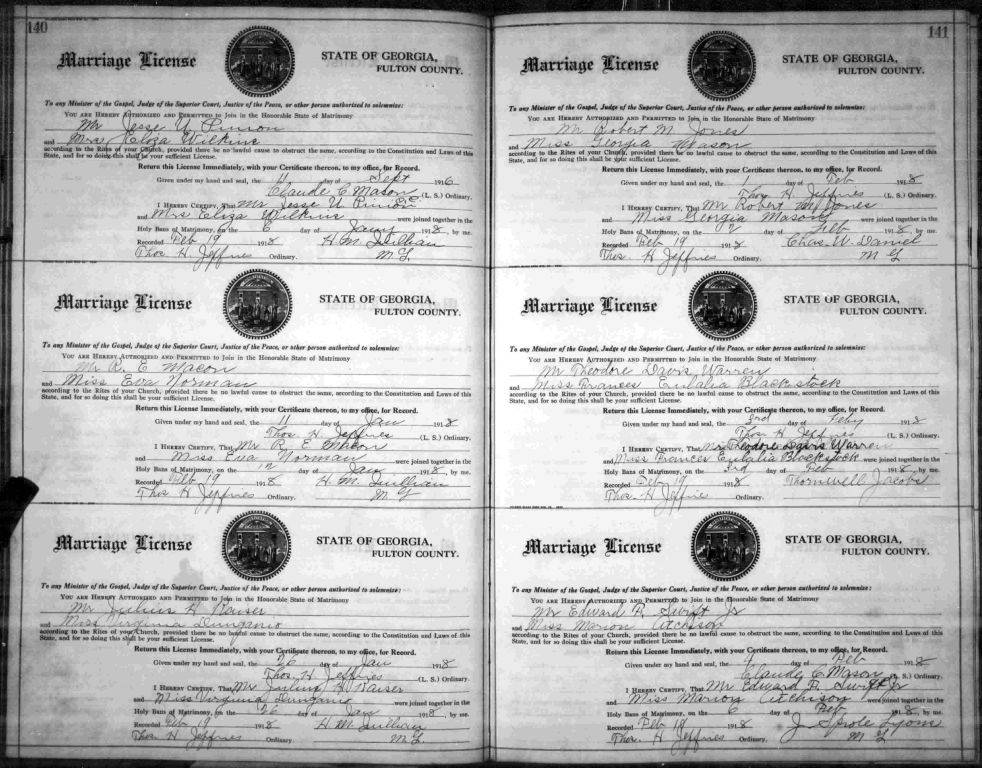 140
Marriage License
STATE OF GEORGIA,
FULTON COUNTY.
To any Minister of the Gospel, Judge of the Superior Court, Justice of the Peace, or other person authorized to solemnize:
YOU ARE HEREBY AUTHORIZED AND PERMITTED to Join in the Honorable State of Matrimony
Mr Jesse U Pinion
and Mrs Eliza Wilkins
according to the Rites of your Church, provided there be no lawful cause to obstruct the same, according to the Constitution and Laws of this
State, and for so doing this shall be your sufficient License.
Return this License Immediately, with your Certificate thereon, to my office, for Record.
Given under my hand and seal, the 11 day of Sept 1916
Claude C Mason (L. S.) Ordinary.
I HEREBY CERTIFY, That Mr Jesse U Pinion
and Mrs Eliza Wilkins were joined together in the
Holy Bans of Matrimony, on the 6 day of Jany 1918, by me.
Recorded Feb 19 1918 H. M. Quillian
Thos H Jeffries Ordinary. M G
Marriage License
STATE OF GEORGIA,
FULTON COUNTY.
To any Minister of the Gospel, Judge of the Superior Court, Justice of the Peace, or other person authorized to solemnize:
YOU ARE HEREBY AUTHORIZED AND PERMITTED to Join in the Honorable State of Matrimony
Mr R. E Macon
and Miss Eva Norman
according to the Rites of your Church, provided there be no lawful cause to obstruct the same, according to the Constitution and Laws of this
State, and for so doing this shall be your sufficient License.
Return this License Immediately, with your Certificate thereon, to my office, for Record.
Given under my hand and seal, the 11 day of Jan 1918
Thos H Jeffries (L. S.) Ordinary.
I HEREBY CERTIFY, That Mr R. E Macon
and Miss Eva Norman were joined together in the
Holy Bans of Matrimony, on the 12 day of Jan 1918, by me.
Recorded Feb 19 1918 H. M. Quillian
Thos H Jeffries Ordinary. M G
Marriage License
STATE OF GEORGIA,
FULTON COUNTY.
To any Minister of the Gospel, Judge of the Superior Court, Justice of the Peace, or other person authorized to solemnize:
YOU ARE HEREBY AUTHORIZED AND PERMITTED to Join in the Honorable State of Matrimony
Mr Julius H Kaiser
and Miss Virginia Dunganio
according to the Rites of your Church, provided there be no lawful cause to obstruct the same, according to the Constitution and Laws of this
State, and for so doing this shall be your sufficient License.
Return this License Immediately, with your Certificate thereon, to my office, for Record.
Given under my hand and seal, the 26 day of Jan 1918
Thos H Jeffries (L. S.) Ordinary.
I HEREBY CERTIFY, That Mr Julius H Kaiser
and Miss Virginia Dunganio were joined together in the
Holy Bans of Matrimony, on the 26 day of Jan 1918, by me.
Recorded Feb 19 1918 H M Quillian
Thos H Jeffries Ordinary. M G.
141
Marriage License
STATE OF GEORGIA,
FULTON COUNTY.
To any Minister of the Gospel, Judge of the Superior Court, Justice of the Peace, or other person authorized to solemnize:
YOU ARE HEREBY AUTHORIZED AND PERMITTED to Join in the Honorable State of Matrimony
Mr Robert M Jones
and Miss Georgia Mason
according to the Rites of your Church, provided there be no lawful cause to obstruct the same, according to the Constitution and Laws of this
State, and for so doing this shall be your sufficient License.
Return this License Immediately, with your Certificate thereon, to my office, for Record.
Given under my hand and seal, the 1 day of Feb 1918
Thos H Jeffries (L. S.) Ordinary.
I HEREBY CERTIFY, That Mr Robert M Jones
and Miss Georgia Mason were joined together in the
Holy Bans of Matrimony, on the 2 day of Feb 1918, by me.
Recorded Feb 19 1918 Chas. W. Daniel
Thos. H Jeffries Ordinary. M G
Marriage License
STATE OF GEORGIA,
FULTON COUNTY.
To any Minister of the Gospel, Judge of the Superior Court, Justice of the Peace, or other person authorized to solemnize:
YOU ARE HEREBY AUTHORIZED AND PERMITTED to Join in the Honorable State of Matrimony
Mr Theodore Davis Warren
and Miss Frances Eulalia Blackstock
according to the Rites of your Church, provided there be no lawful cause to obstruct the same, according to the Constitution and Laws of this
State, and for so doing this shall be your sufficient License.
Return this License Immediately, with your Certificate thereon, to my office, for Record.
Given under my hand and seal, the 2nd day of Feby 1918
Thos. H Jeffries (L. S.) Ordinary.
I HEREBY CERTIFY, That Mr Theodore Davis Warren
and Miss Frances Eulalia Blackstock were joined together in the
Holy Bans of Matrimony, on the 3rd day of Feb 1918, by me.
Recorded Feb 19 1918 Thornwell Jacobs
Thos. H Jeffrie Ordinary.
Marriage License
STATE OF GEORGIA,
FULTON COUNTY.
To any Minister of the Gospel, Judge of the Superior Court, Justice of the Peace, or other person authorized to solemnize:
YOU ARE HEREBY AUTHORIZED AND PERMITTED to Join in the Honorable State of Matrimony
Mr Edward P. Swift Jr
and Miss Marion Atchison
according to the Rites of your Church, provided there be no lawful cause to obstruct the same, according to the Constitution and Laws of this
State, and for so doing this shall be your sufficient License.
Return this License Immediately, with your Certificate thereon, to my office, for Record.
Given under my hand and seal, the 4 day of Feb 1918
Claude C Mason (L. S.) Ordinary.
I HEREBY CERTIFY, That Mr Edward P. Swift Jr
and Miss Marion Atchison were joined together in the
Holy Bans of Matrimony, on the 6 day of Feb 1918, by me.
Recorded Feb 19 1918 J Sprole Lyons
Thos. H Jeffries Ordinary. M G